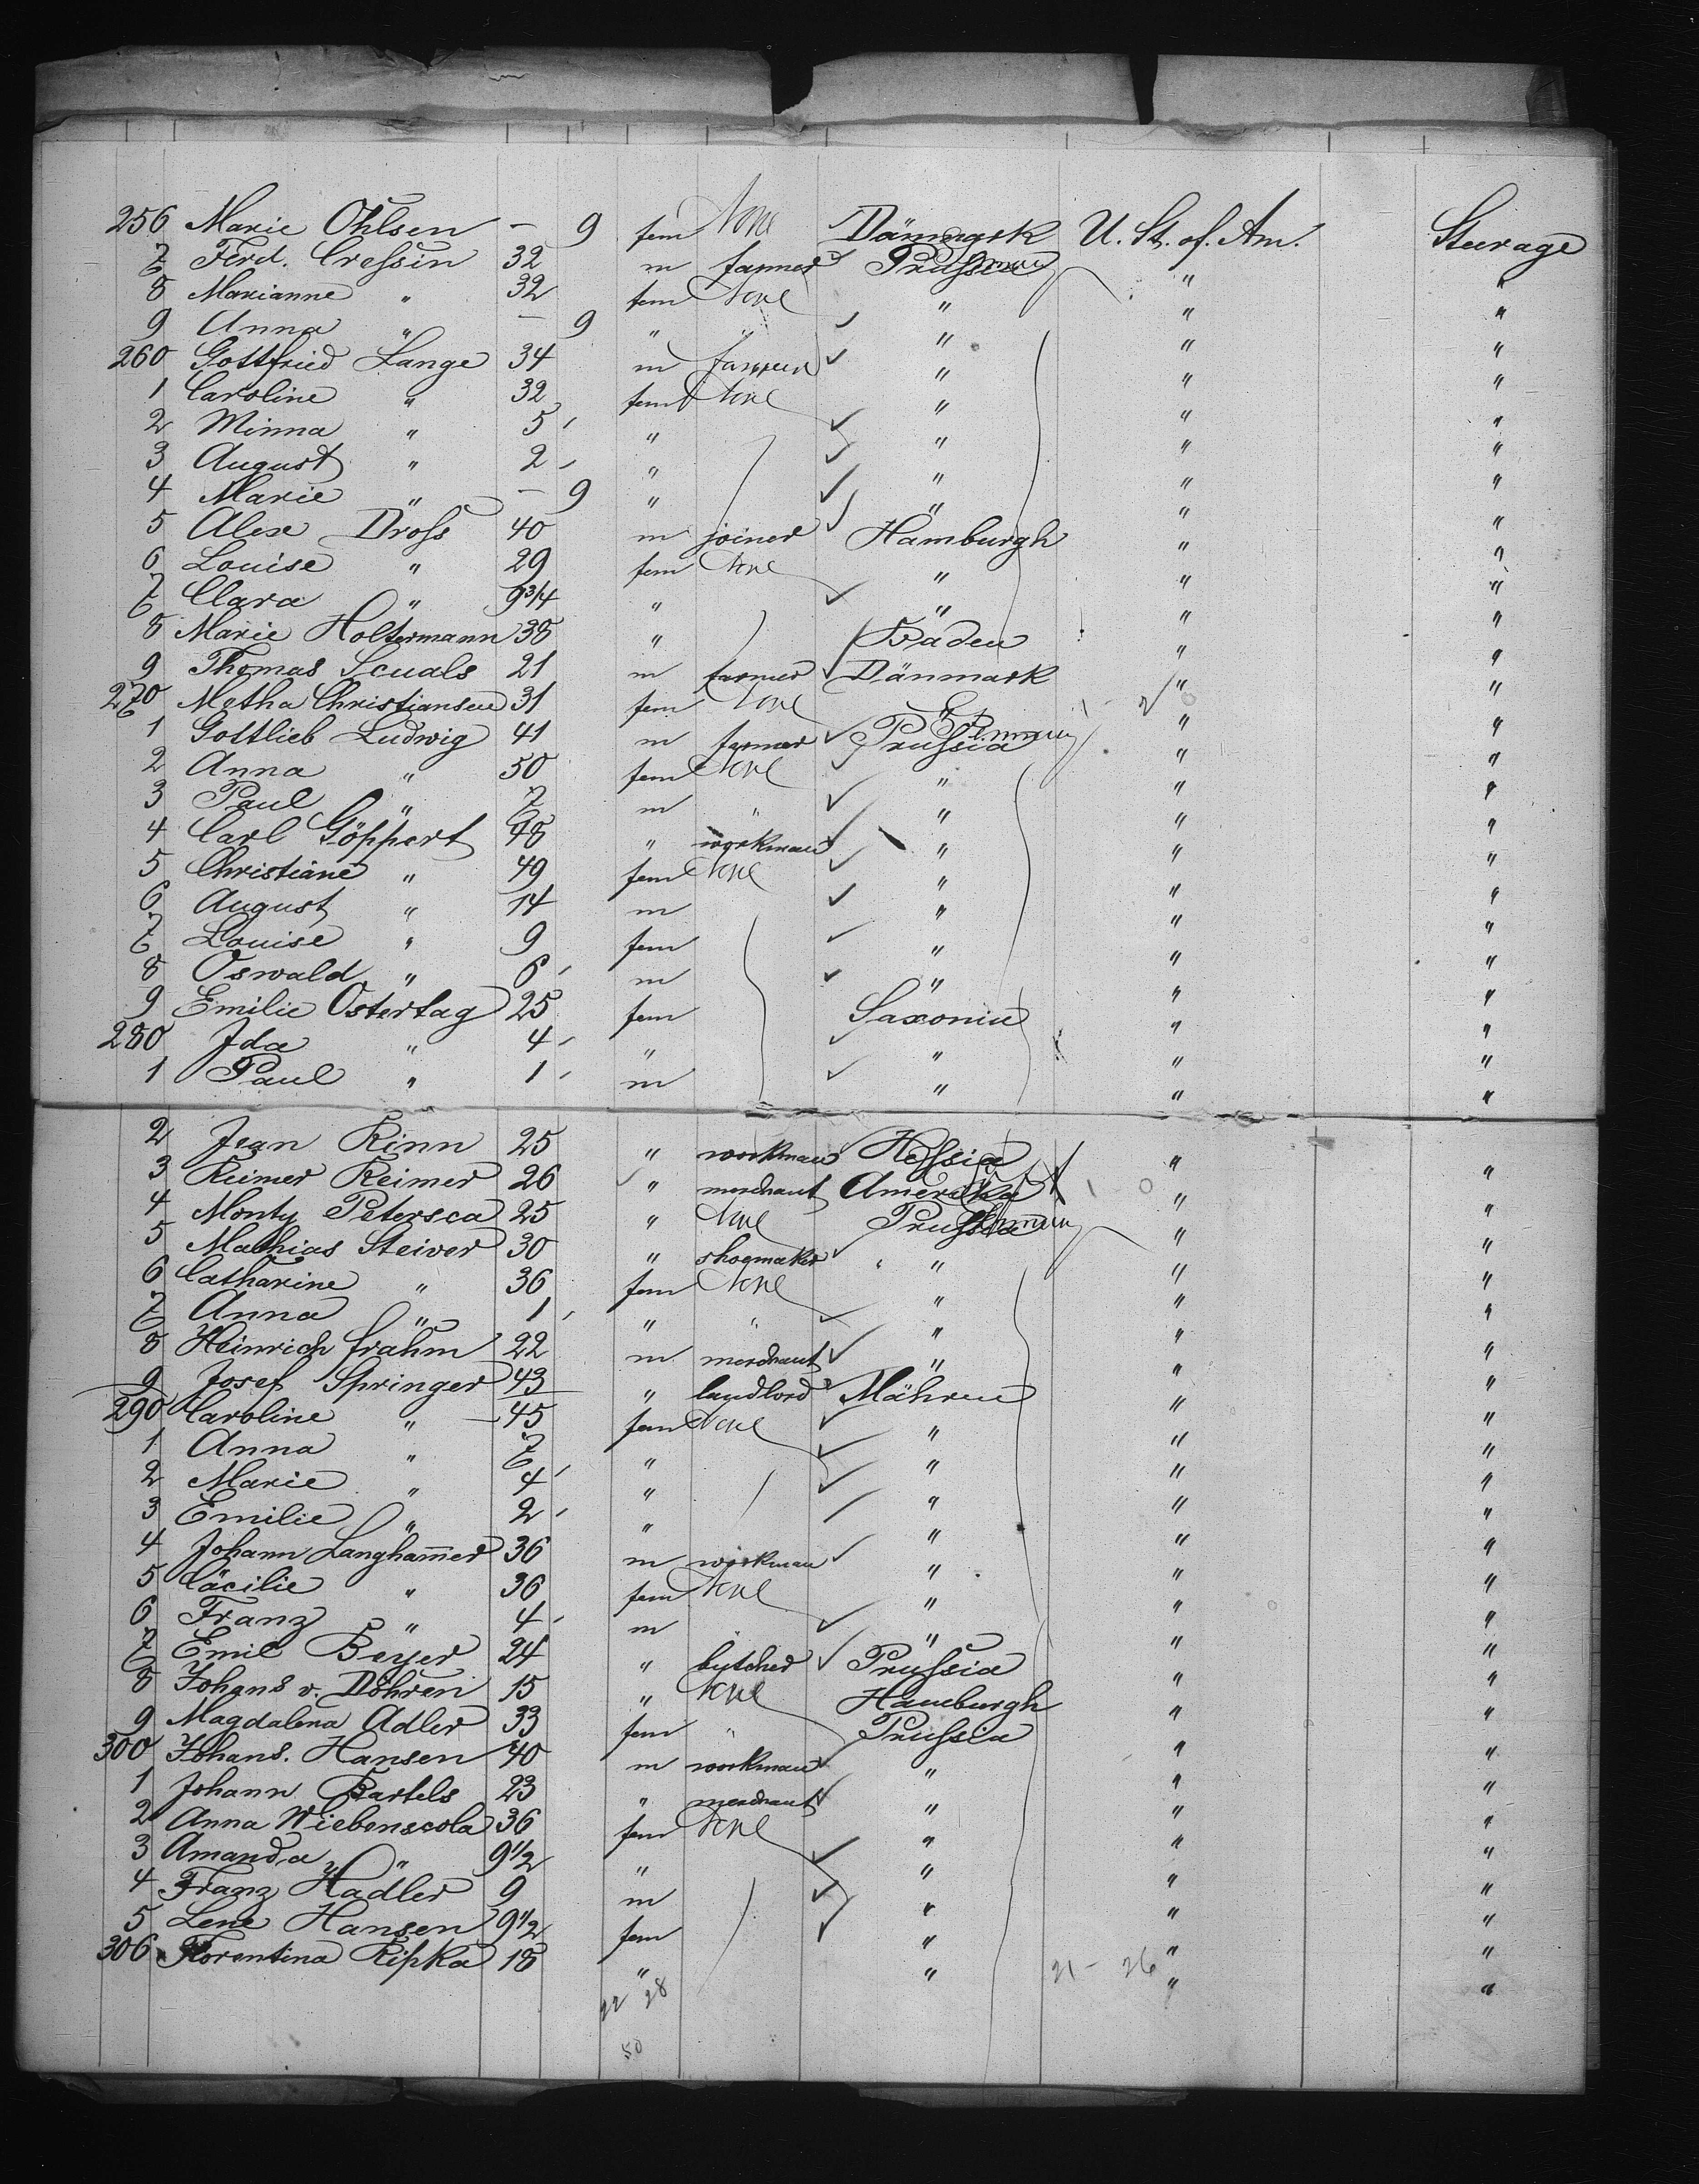 256 Marie Ohlsen — 9 fem None Dänmark U. St. of. Am. Steerage
7 Ferd. Cressin 32 m farmer Prussia " "
8 Marianne " 32 fem None " " "
9 Anna " — 9 " " " " "
260 Gottfried Lange 34 m farmer " " "
1 Caroline " 32 fem None " " "
2 Minna " 5 " " " "
3 August " 2 " " " "
4 Marie " — 9 " " " "
5 Alex Dross 40 m joiner Hamburgh " "
6 Louise " 29 fem None " " "
7 Clara " 9 3/4 " " " "
8 Marie Holtermann 38 " Baden " "
9 Thomas Scuals 21 m farmer Dänmark " "
270 Metha Christiansen 31 fem None " " "
1 Gottlieb Ludwig 41 m farmer Prussia " "
2 Anna " 50 fem None " " "
3 Paul " 7 m " " " "
4 Carl Göppert 48 " workman " " "
5 Christiane " 49 fem None " " "
6 August " 14 m " " "
7 Louise " 9 fem " " "
8 Oswald " 6 m " " "
9 Emilie Ostertag 25 fem Saxonia " "
280 Ida " 4 " " " "
1 Paul " 1 m " " "
2 Jean Rinn 25 " workman Hessia " "
3 Reimer Reimer 26 " merchant Amerika " "
4 Monty Petersca 25 " None Prussia " "
5 Mathias Steiver 30 " shoemaker " " "
6 Catharine " 36 fem None " " "
7 Anna " 1 " " " " "
8 Heinrich Frahm 22 m merchant " " "
9 Josef Springer 43 " landlord Mähren " "
290 Caroline " 45 fem None " " "
1 Anna " 7 " " " "
2 Marie " 4 " " " "
3 Emilie " 2 " " " "
4 Johann Langham̅er 36 m workman " " "
5 Cäcilie " 36 fem None " " "
6 Franz " 4 m " " "
7 Emil Beyer 24 " butcher Prussia " "
8 Johans v. Döhren 15 " None Hamburgh " "
9 Magdalena Adler 33 fem " Prussia " "
300 Johans. Hansen 40 m workman " " "
1 Johann Bartels 23 " merchant " " "
2 Anna Wiebenscola 36 fem None " " "
3 Amanda " 9 1/2 " " " "
4 Franz Hadler 9 m " " "
5 Lene Hansen 9 1/2 fem " " "
306 Florentina Ripka 18 " " " "
22 28 21 - 26
50